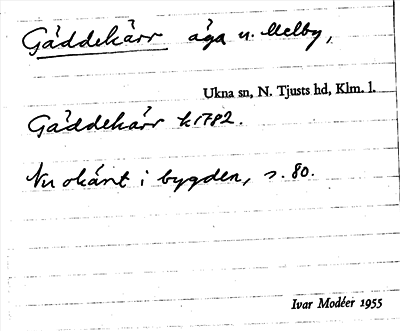 Gäddekärr äga u. Melby,
Ukna sn, N. Tjusts hd, Klm. l.
Gäddekärr k 1782.
Nu okänt i bygden, s. 80.
Ivar Modéer 1955